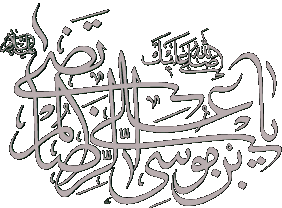 صلى الله عليك
يا علي بن موسى الرضا المرتضى